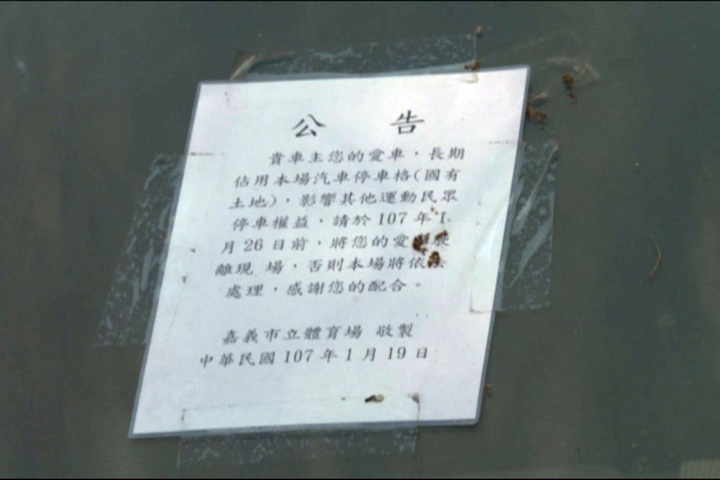 公告
貴車主您的愛車，長期
佔用本場汽車停車格(國有
土地)，影響其他運動民眾
停車權益，請於107年1
月26日前，將您的愛
離現 場，否則本場將依
處理，感謝您的配合。
嘉義市立體育場 敬製
中華民國107年1月19日